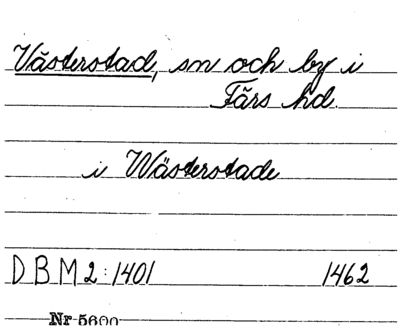 Västerstad, sn och by i
Färs hd.
i Wästerstade
DBM 2:1401 1462
Nr 5600